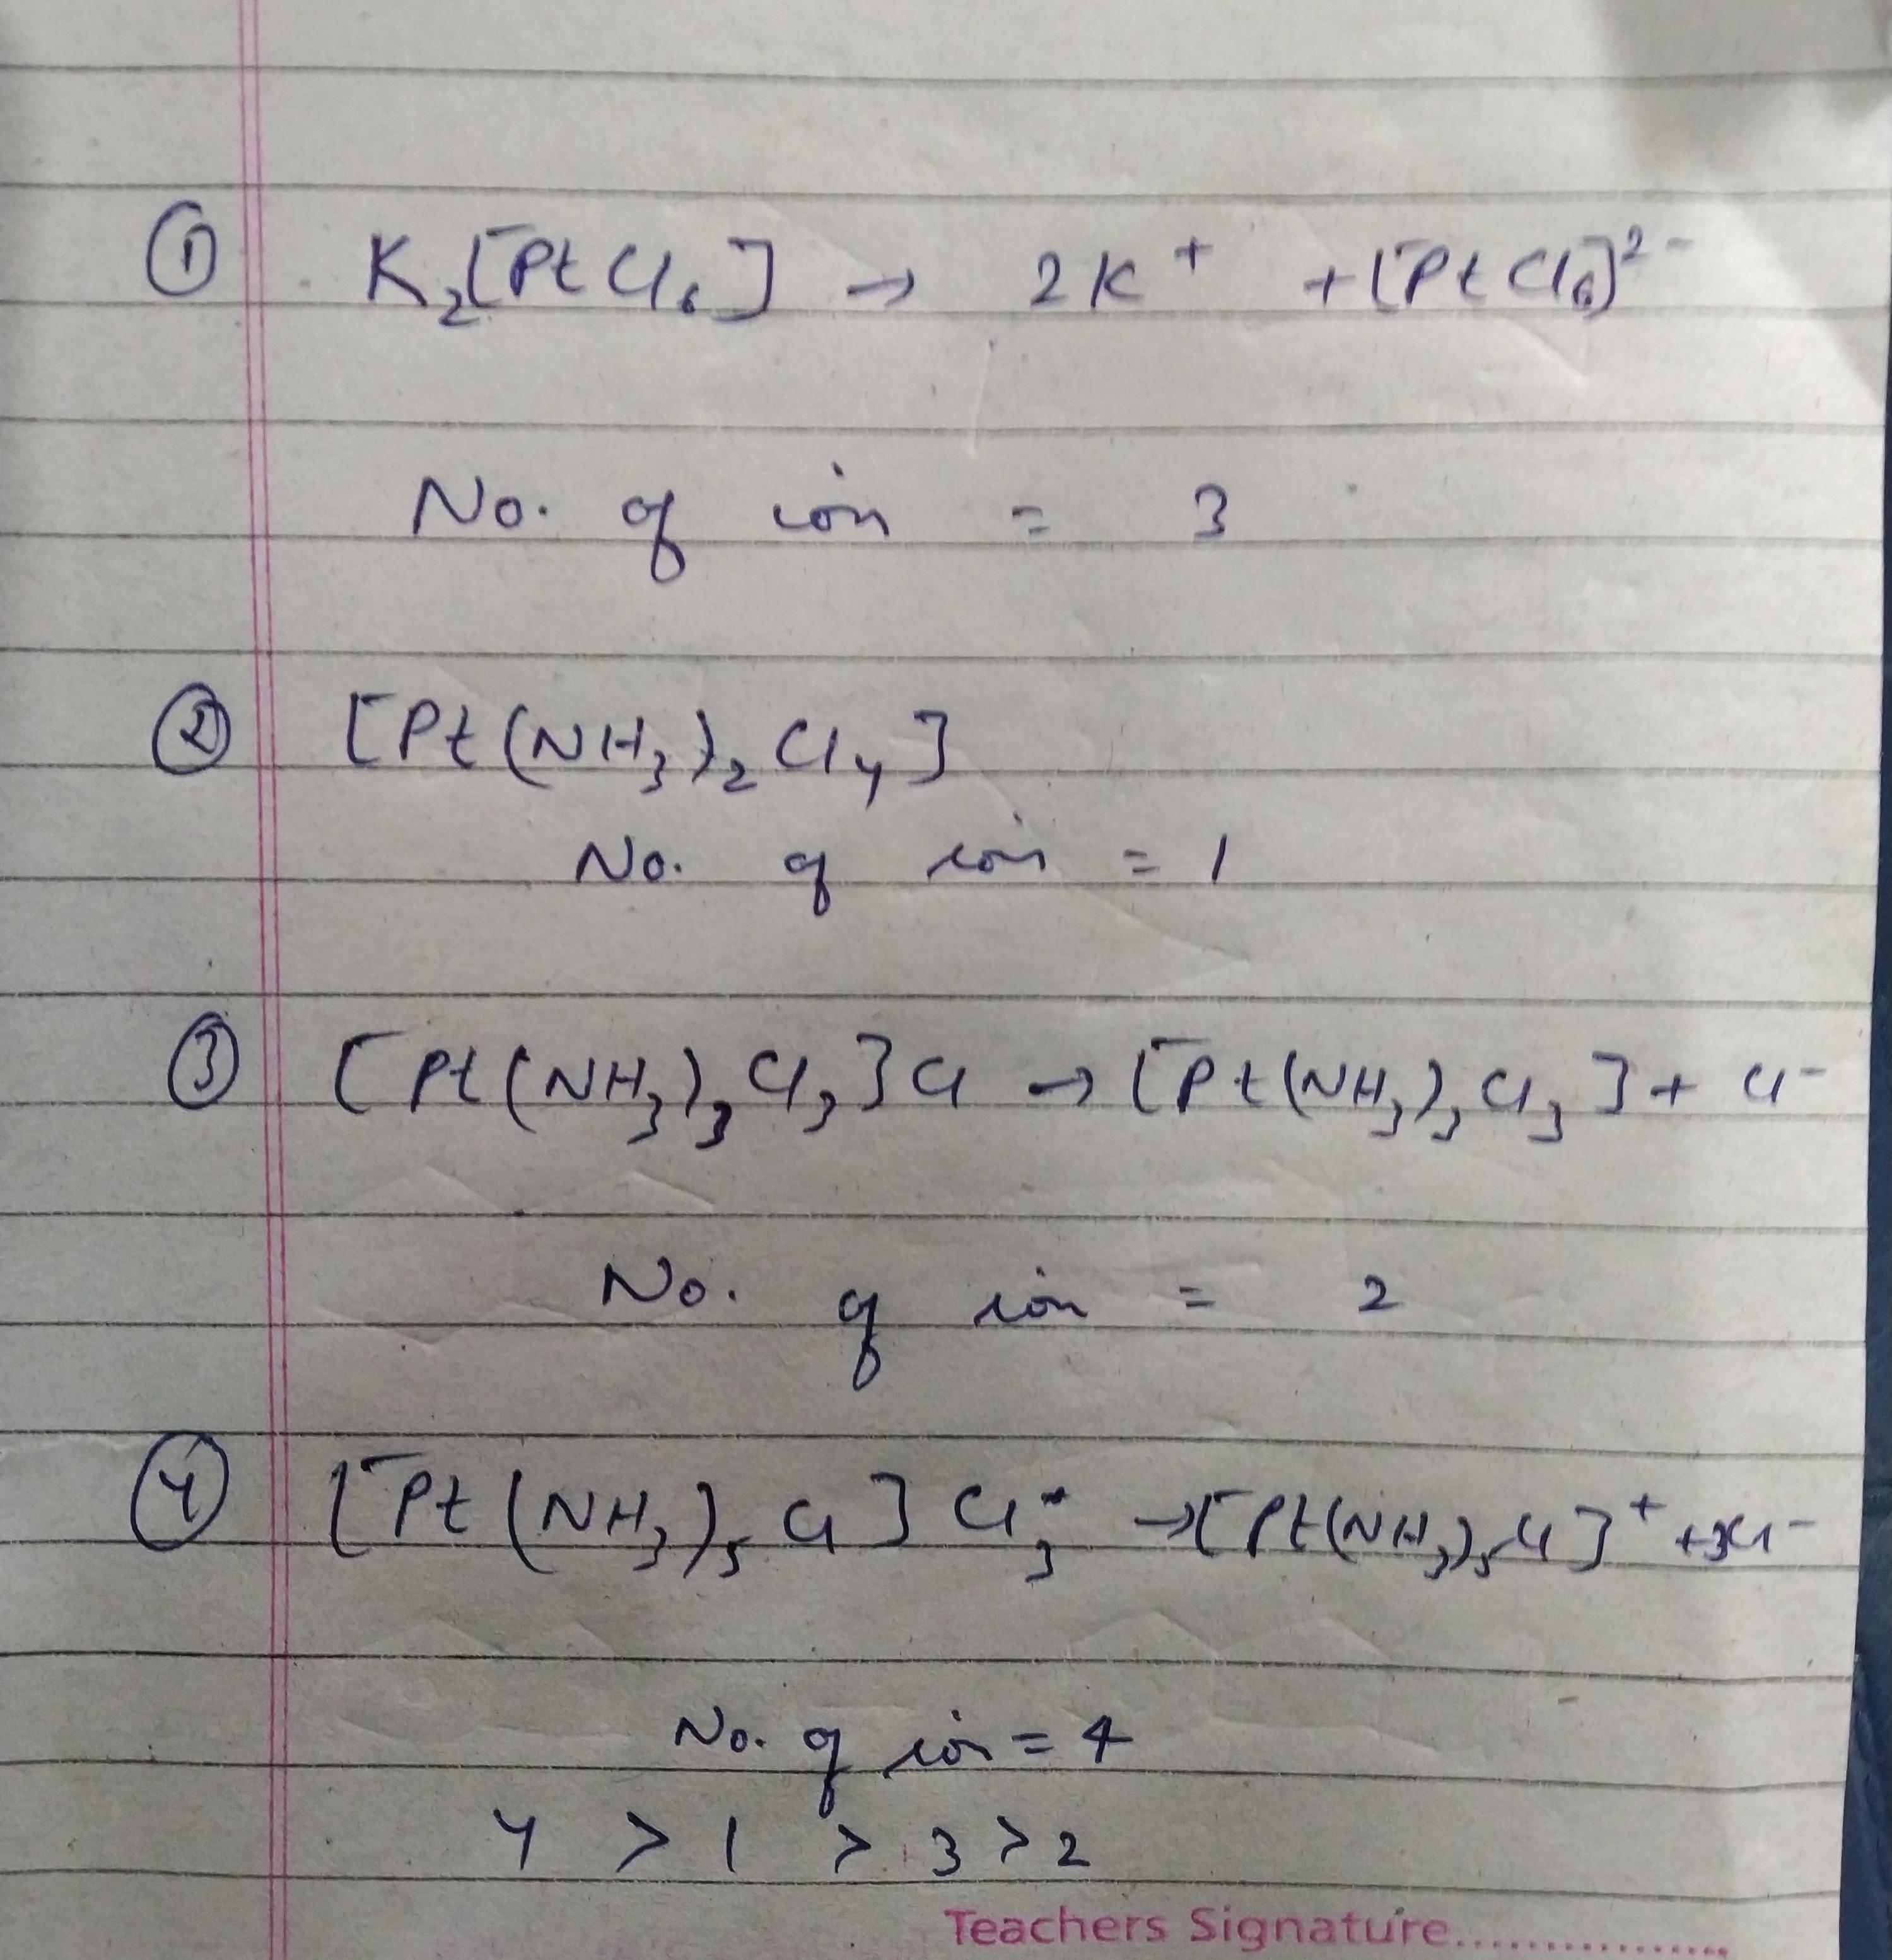 ① K₂[PtCl₆] → 2K⁺ + [PtCl₆]²⁻
No. of ion = 3
② [Pt(NH₃)₂Cl₄]
No. of ion = 1
③ [Pt(NH₃)₃Cl₃]Cl → [Pt(NH₃)₃Cl₃] + Cl⁻
No. of ion = 2
④ [Pt(NH₃)₅Cl]Cl₃ → [Pt(NH₃)₅Cl]⁺ + 3Cl⁻
No. of ion = 4
4 > 1 > 3 > 2
Teachers Signature...............